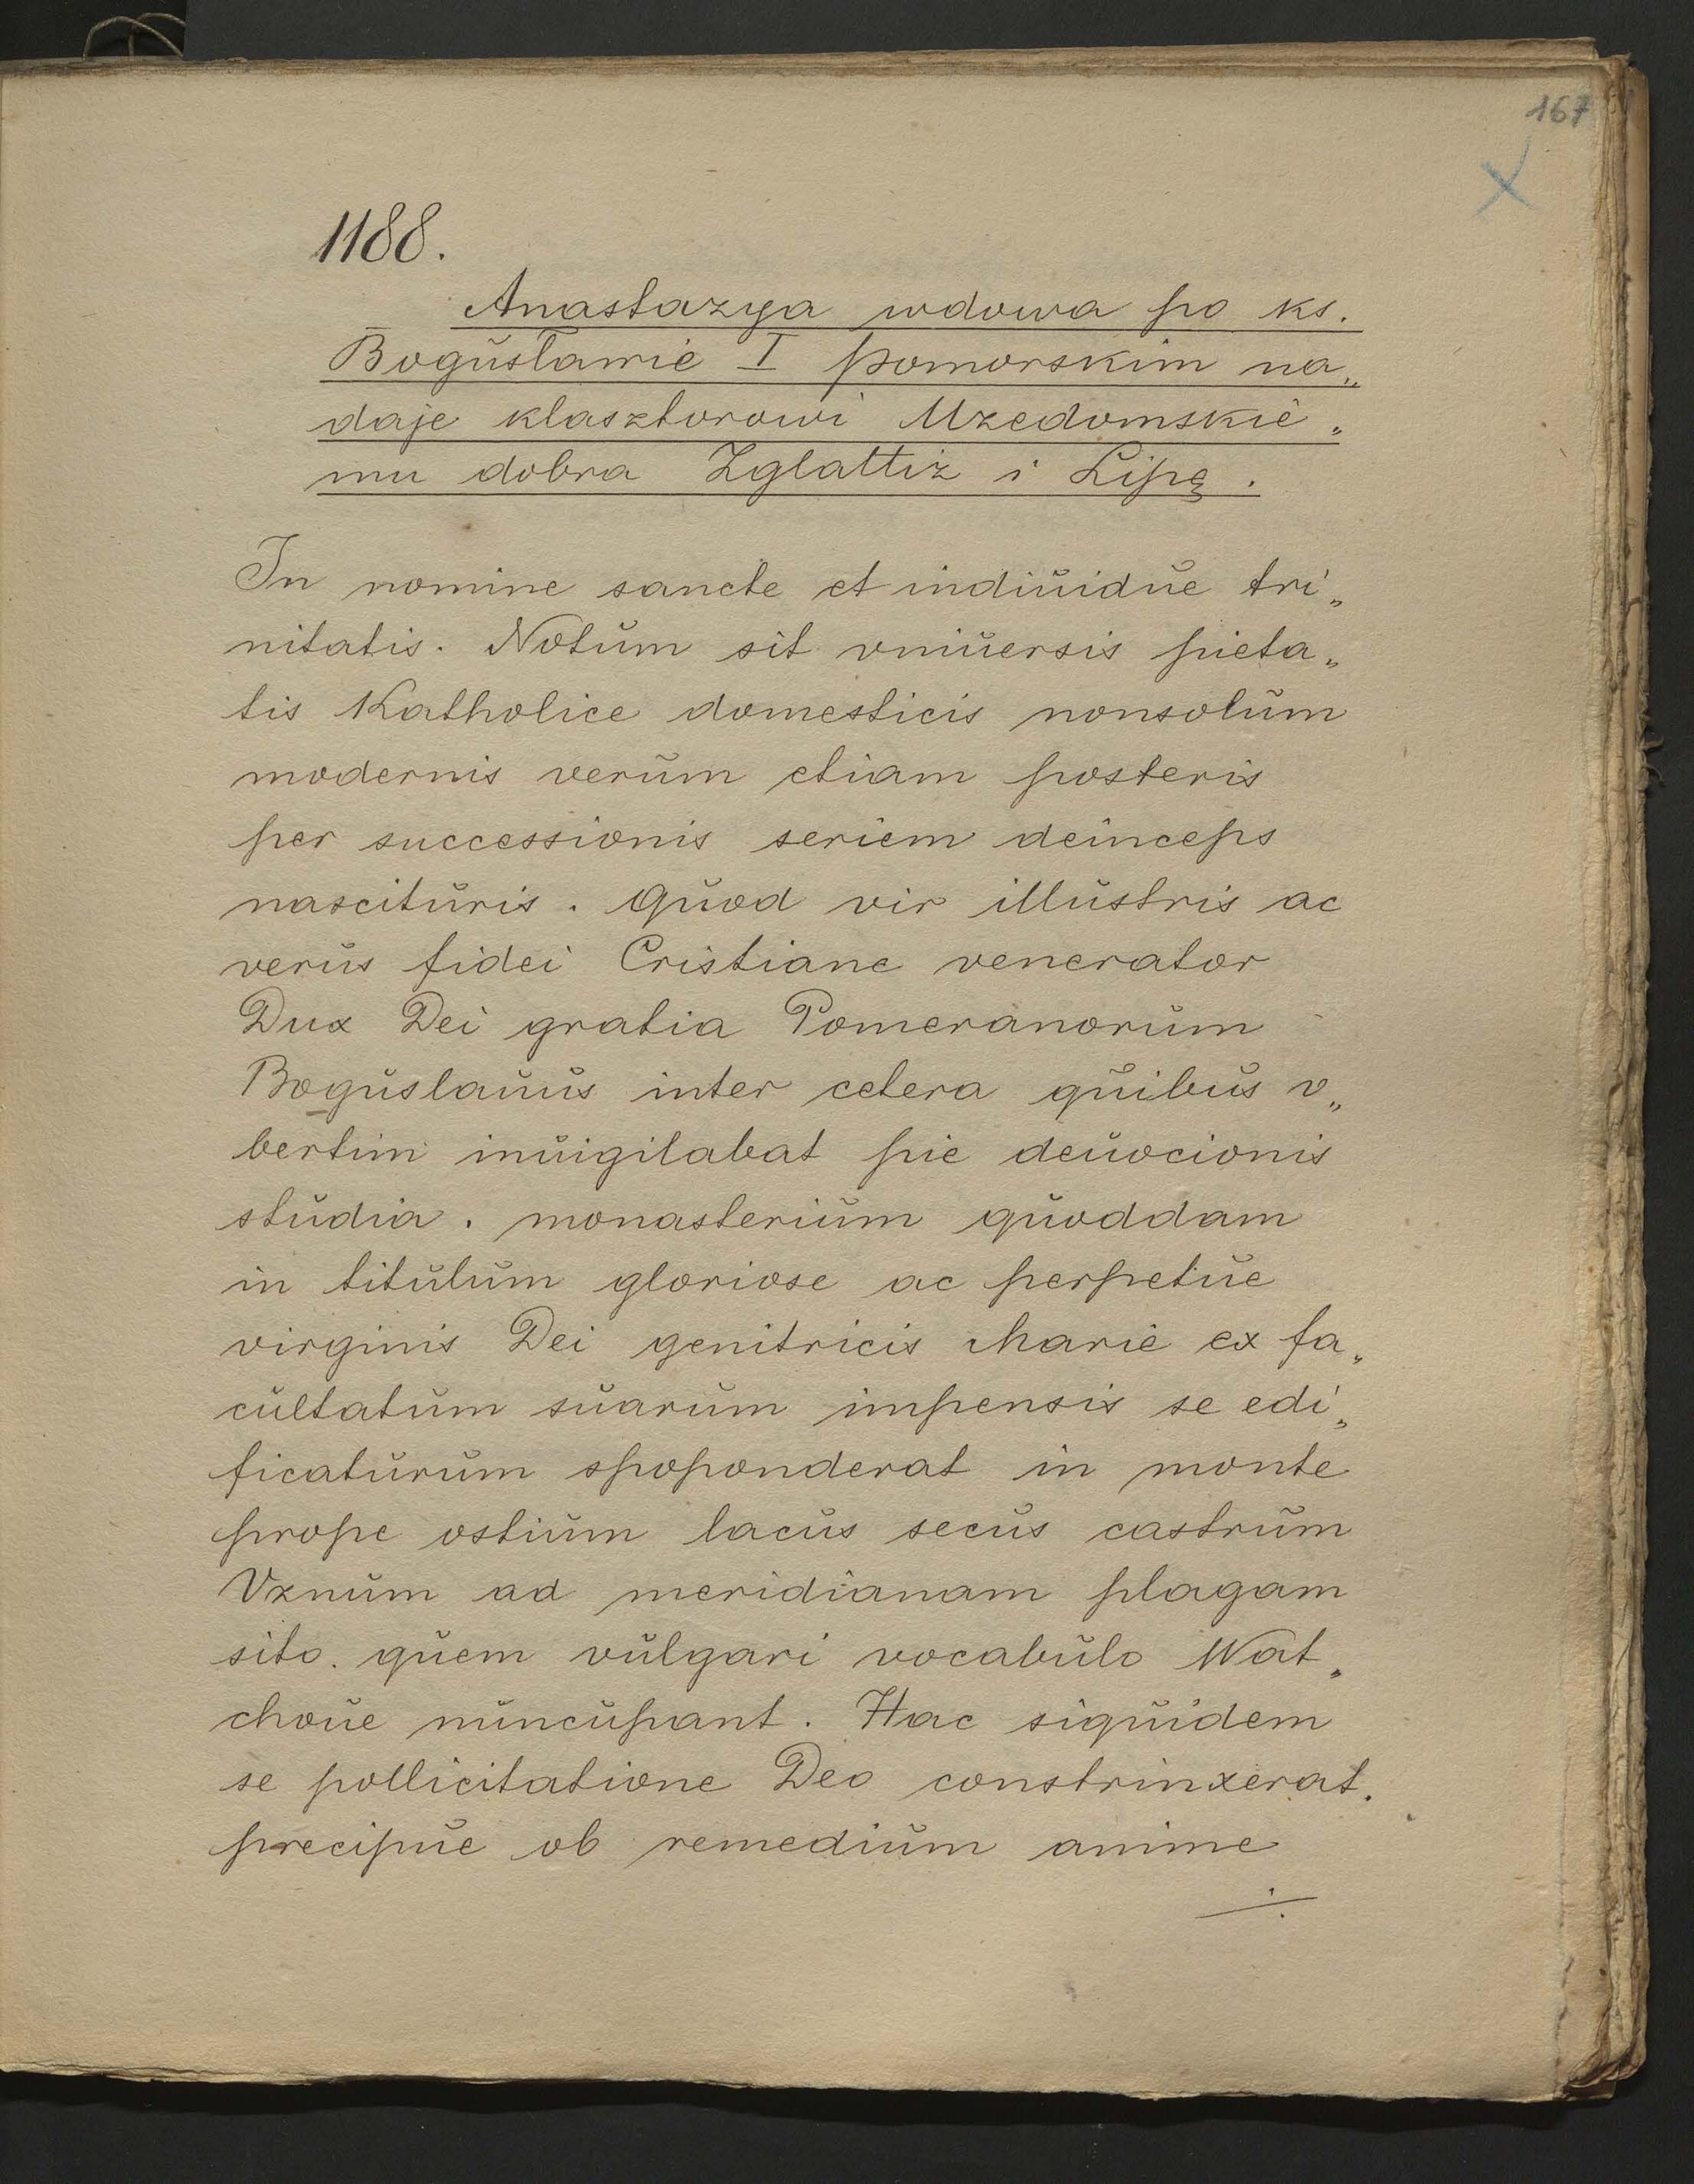 167
1188.
Anastazya wdowa po ks.
Bogusławie I pomorskim na„
daje klasztorowi Uzedomskie„
mu dobra Zglattiz i Lipę.
In nomine sancte et indiuidue tri„
nitatis. Notum sit vniuersis pieta„
tis Katholice domesticis nonsolum
modernis verum etiam posteris
per successionis seriem deinceps
nascituris. Quod vir illustris ac
verus fidei Cristiane venerator
Dux Dei gratia Pomeranorum
Boguslauus inter cetera quibus v„
bertim inuigilabat pie deuocionis
studia. monasterium quoddam
in titulum gloriose ac perpetue
virginis Dei genitricis Marie ex fa„
cultatum suarum impensis se edi„
ficaturum spoponderat in monte
prope ostium lacus secus castrum
Vznum ad meridianam plagam
sito. quem vulgari vocabulo Wat„
choue nuncupant. Hac siquidem
se pollicitatione Deo constrinxerat.
precipue ob remedium anime